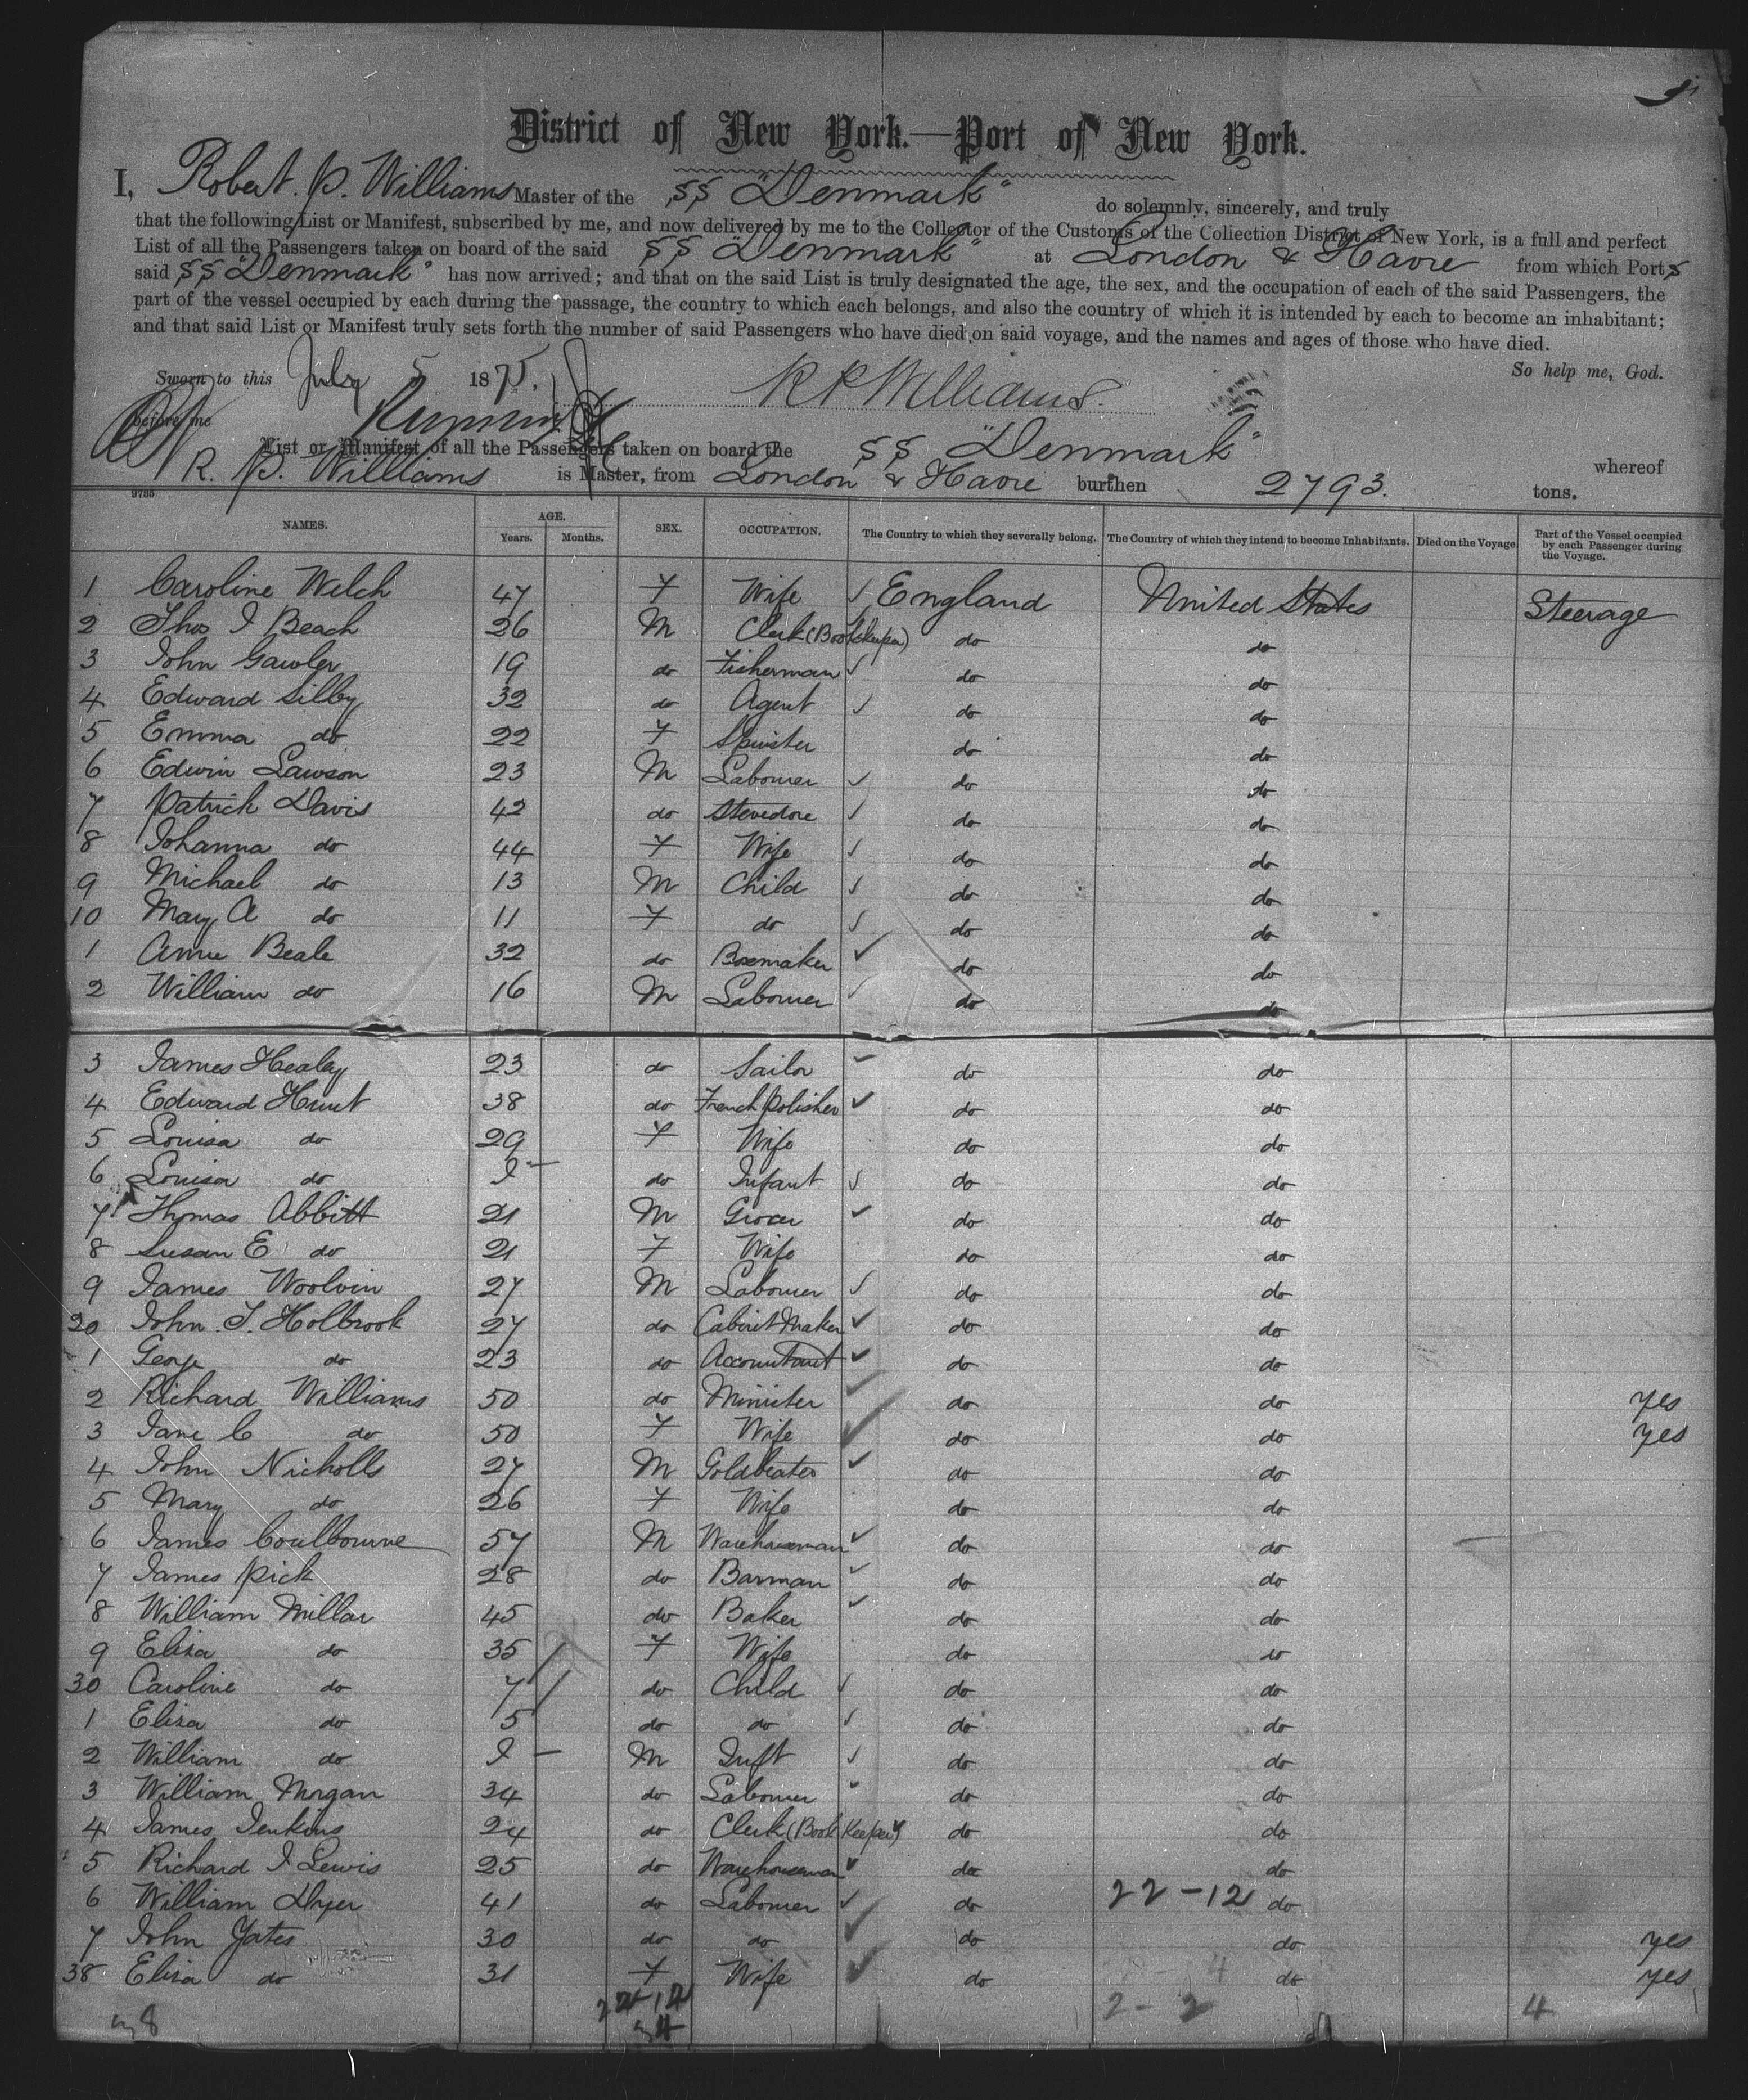 District of New York.—Port of New York.
I, Robert. P. Williams Master of the SS "Denmark" do solemnly, sincerely, and truly
that the following List or Manifest, subscribed by me, and now delivered by me to the Collector of the Customs of the Collection District of New York, is a full and perfect
List of all the Passengers taken on board of the said SS "Denmark" at London & Havre from which Ports
said SS "Denmark" has now arrived; and that on the said List is truly designated the age, the sex, and the occupation of each of the said Passengers, the
part of the vessel occupied by each during the passage, the country to which each belongs, and also the country of which it is intended by each to become an inhabitant;
and that said List or Manifest truly sets forth the number of said Passengers who have died on said voyage, and the names and ages of those who have died.
Sworn to this July 5 1875. R P Williams. So help me, God.
before me
List or Manifest of all the Passengers taken on board the SS "Denmark" whereof
R. P. Williams is Master, from London & Havre burthen 2793. tons.
9785
NAMES. AGE. Years. Months. SEX. OCCUPATION. The Country to which they severally belong. The Country of which they intend to become Inhabitants. Died on the Voyage Part of the Vessel occupied by each Passenger during the Voyage.
1 Caroline Welch 47 F Wife England United States Steerage
2 Thos J Beach 26 M Clerk (Bookkeeper) do do
3 John Gawler 19 do Fisherman do do
4 Edward Silby 32 do Agent do do
5 Emma do 22 F Spinster do do
6 Edwin Lawson 23 M Labourer do do
7 Patrick Davis 42 do Stevedore do do
8 Johanna do 44 F Wife do do
9 Michael do 13 M Child do do
10 Mary A do 11 F do do do
1 Annie Beale 32 do Boxmaker do do
2 William do 16 M Labourer do do
3 James Healey 23 do Sailor do do
4 Edward Hunt 38 do French Polisher do do
5 Louisa do 29 F Wife do do
6 Louisa do I do Infant do do
7 Thomas Abbitt 21 M Grocer do do
8 Susan E do 21 F Wife do do
9 James Woolvin 27 M Labourer do do
20 John. T. Holbrook 27 do Cabinet Maker do do
1 George do 23 do Accountant do do
2 Richard Williams 50 do Minister do do yes
3 Jane C do 50 F Wife do do yes
4 John Nicholls 27 M Goldbeater do do
5 Mary do 26 F Wife do do
6 James Coulbourne 57 M Warehouseman do do
7 James Pick 28 do Barman do do
8 William Millar 45 do Baker do do
9 Eliza do 35 F Wife do do
30 Caroline do 7 do Child do do
1 Eliza do 5 do do do do
2 William do I M Inft do do
3 William Morgan 34 do Labourer do do
4 James Jenkins 24 do Clerk (Book Keeper) do do
5 Richard J Lewis 25 do Warehouseman do do
6 William Dyer 41 do Labourer do 22-12 do
7 John Yates 30 do do do do yes
38 Eliza do 31 F Wife do do yes
2-2 4